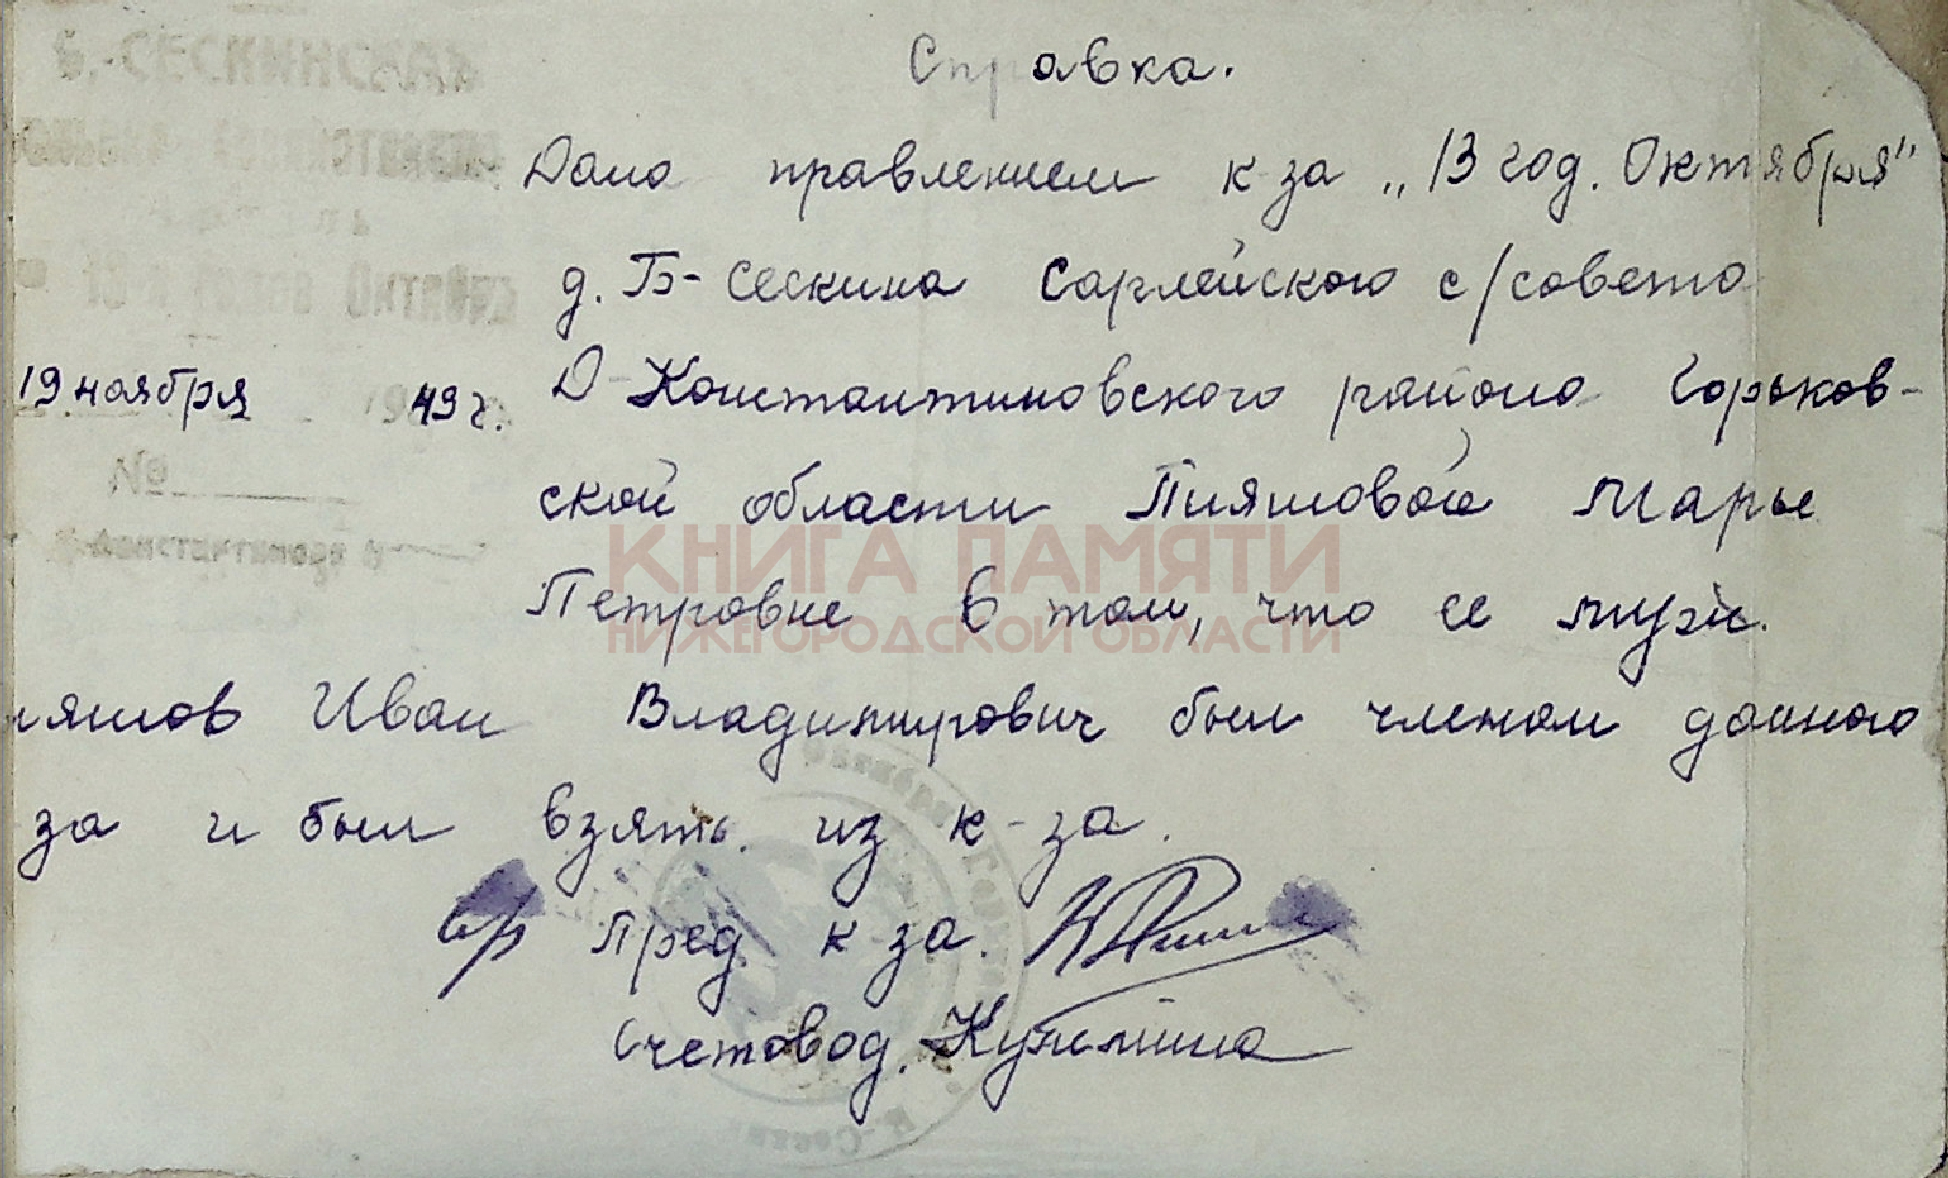 Б. СЕСКИНСКАЯ
Октября
19 ноября 49 г.
№
Справка.
Дана правлением к-за „13 год. Октября"
д. Б-Сескина Сарлейского с/совета
Д-Константиновского района Горьков-
ской области Пияшовой Марье
Петровне в том, что ее муж.
ияшов Иван Владимирович был членом данного
за и был взять из к-за.
вр Пред. к-за.
Счетовод.
КНИГА ПАМЯТИ
НИЖЕГОРОДСКОЙ ОБЛАСТИ